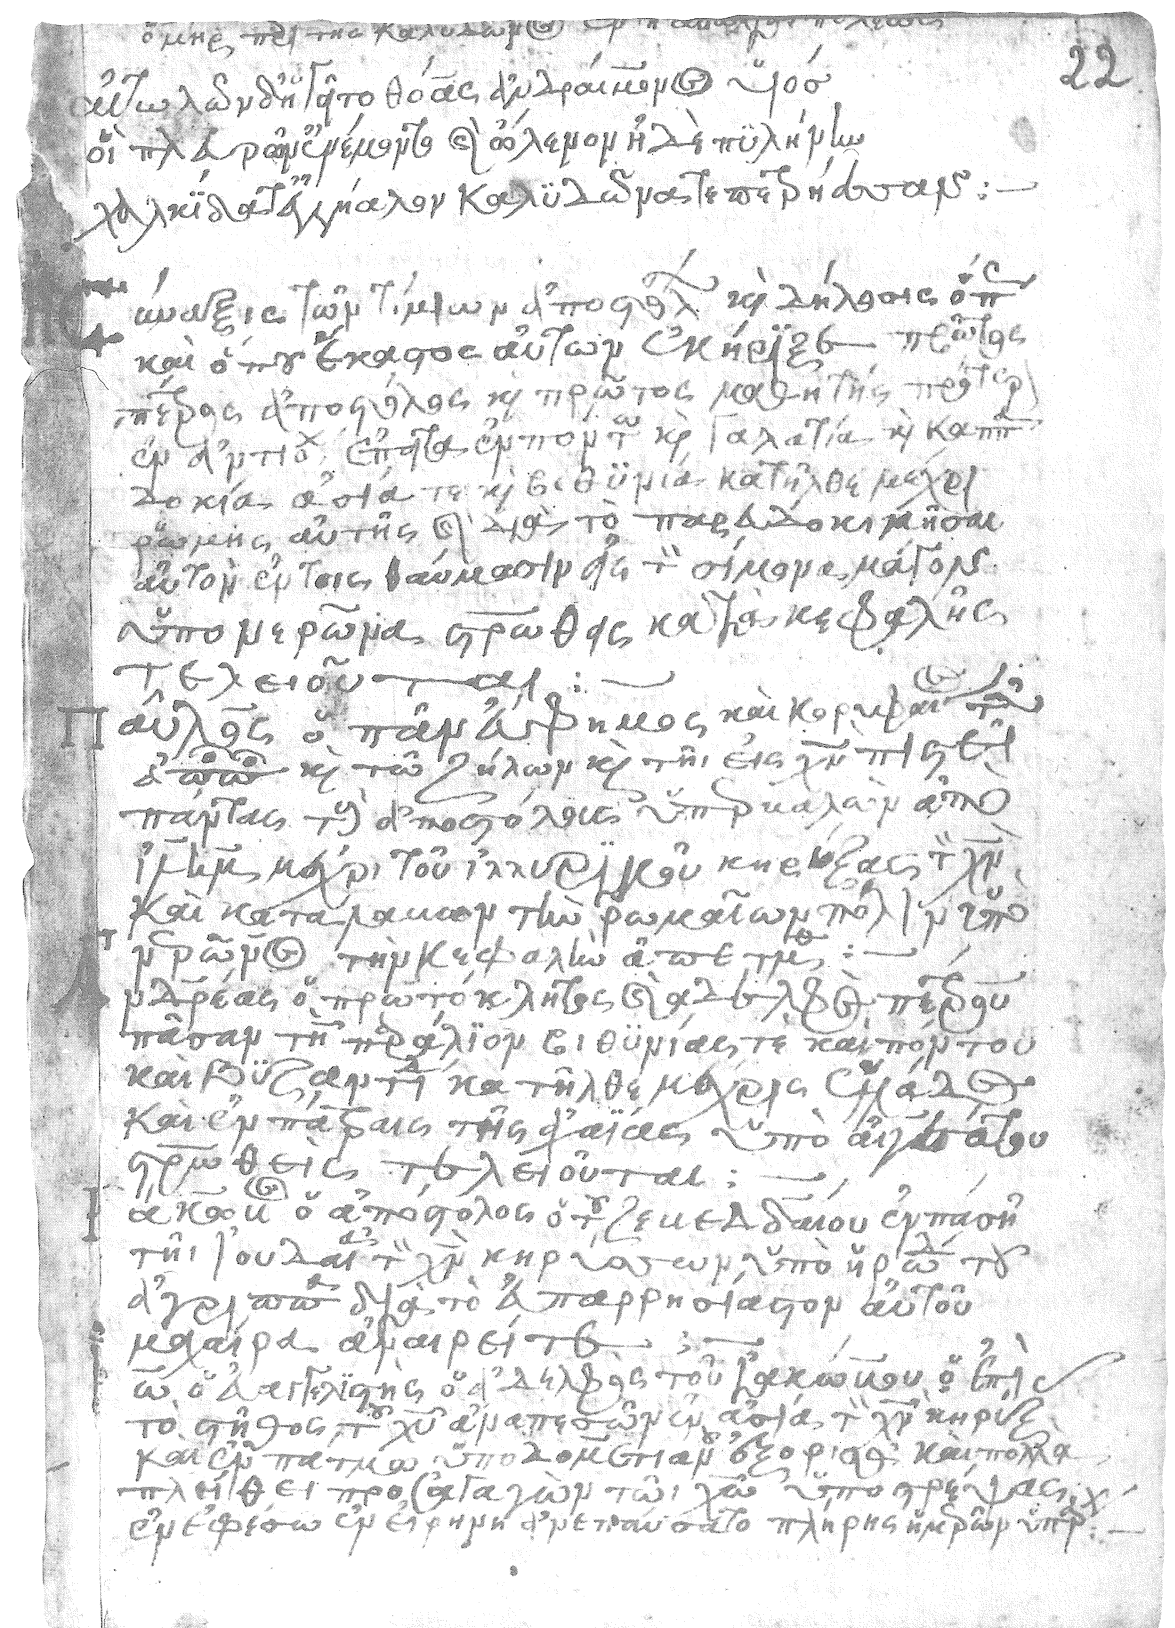 22
αἰτωλῶν δ' ἡγεῖτο θόας ἀνδραίμονος υἱόσ
οἳ πλευρῶν' ἐνέμοντο καὶ ὤλενον ἠδὲ πϋλήνην
χαλκίδα τ' ἀγχίαλον καλϋδῶνα τε πετρήεσσαν :—
τῶν τιμίων ἀποστόλων καὶ ὅπ
καὶ ὅπου ἕκαστος αὐτῶν ἐκήρϋξε πρῶτος
πέτρος ἀπόστολος καὶ πρῶτος μαθητής
ἐν ἀντιοχ ἔπειτα ἐν πόντω καὶ γαλατία καὶ καππ
δοκία ἀσία τε καὶ βιθϋνία κατῆλθε μέχρι
ῥώμης αὐτῆς καὶ διὰ τὸ
αὐτὸν ἐν τοῖς θαύμασιν εἰς τὸν σίμωνα μάγον
ὑπο νέρωνα σταυρωθεὶς κατὰ κεφαλῆς
τελειοῦται :—
Παῦλος ὁ πανεύφημος καὶ κορυφαῖος τῶν
καὶ τῶ ζήλω καὶ τῆι εἰς χν πίστει
πάντας τοὺς ἀποστόλους ἀπὸ
ἱλημ μέχρι τοῦ ἰλλυρϊκοῦ κηρύξας τὸν χν
καὶ καταλαβὼν τὴν ῥωμαίων πόλιν ὑπὸ
νέρωνος τὴν κεφαλὴν ἀπετμήθ :—
Ανδρέας ὁ πρωτόκλητος καὶ ἀδελφὸς πέτρου
πᾶσαν τὴν παράλϊον βιθϋνίας τὲ καὶ πόντου
καὶ Βϋζαντί κατῆλθε μέχρις ἑλλάδος
καὶ ἐν πάτραις τῆς ἀχαΐας ὑπὸ αἰγεάτου
σταυρωθεὶς τελειοῦται :—
Ιάκωβος ὁ ἀπόστολος ὁ τοῦ ζεβεδαίου ἐν πάση
τῆι ἰουδαία τὸν χν κηρύσσων ὑπὸ ἡρώδ τοῦ
διὰ τὸ εὐπαρρησίαστον αὐτοῦ
μαχαίρα ἀναιρεῖτε :—
ιω ὁ εὐαγγελϊστὴς ὁ ἀδελφὸς τοῦ ἰακώβου ὁ ἐπὶ
τὸ στῆθος τοῦ χυ ἀναπεσὼν ἐν ἀσία τὸν χν κηρύξ
καὶ ἐν πάτμω ὑπο δομετιανοῦ ἐξορισθ καὶ πολλὰ
πλείθει προσαγαγὼν τῶι χω ὑποστρέψας
ἐν ἐφέσω ἐν εἰρήνη ἀνεπαύσατο πλήρης ἡμερῶν :—